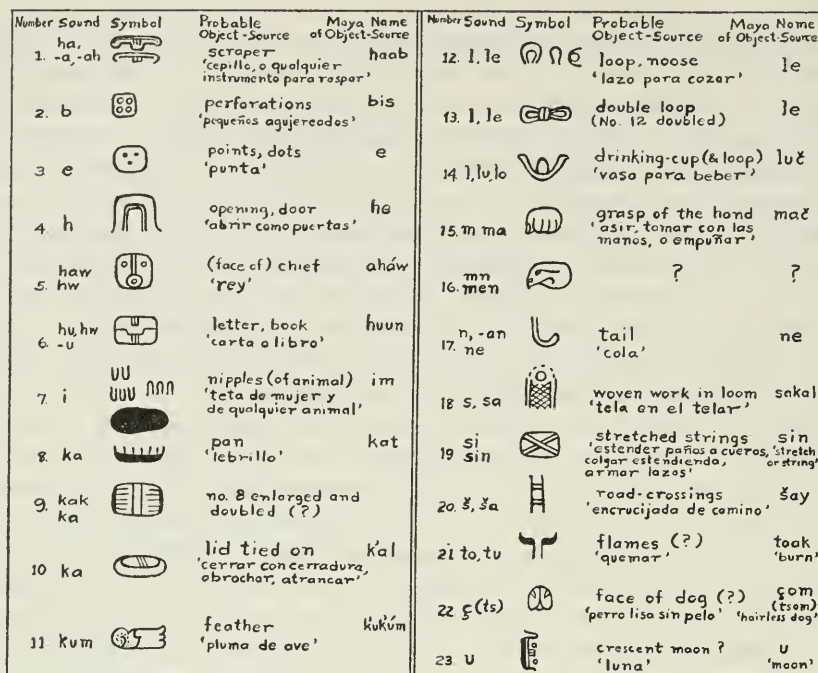 Number Sound Symbol Probable Object-Source Maya Name of Object-Source
1. ha, -a, -ah scraper haab
'cepillo, o qualquier
instrumento para raspar'
2. b perforations bis
'pequeños agujereados'
3 e points, dots e
'punta'
4. h opening, door he
'abrir como puertas'
5. haw hw (face of) chief aháw
'rey'
6. hu, hw -u letter, book huun
'carta o libro'
7. i nipples (of animal) im
'teta de mujer y
de qualquier animal'
8. ka pan kat
'lebrillo'
9. kak ka no. 8 enlarged and
doubled (?)
10 ka lid tied on k'al
'cerrar con cerradura,
abrochar, atrancar'
11. kum feather k'uk'úm
'pluma de ave'
Number Sound Symbol Probable Object-Source Maya Name of Object-Source
12. l, le loop, noose le
'lazo para cazar'
13. l, le double loop le
(No. 12 doubled)
14. l, lu, lo drinking-cup (& loop) luč
'vaso para beber'
15. m ma grasp of the hand mač
'asir, tomar con las
manos, o empuñar'
16. mn men ? ?
17. n, -an ne tail ne
'cola'
18 s, sa woven work in loom sakal
'tela en el telar'
19 si sin stretched strings sin
'estender paños a cueros, 'stretch
colgar estendienda, or string'
armar lazos'
20. š, ša road-crossings šay
'encrucijada de camino'
21 to, tu flames (?) took
'quemar' 'burn'
22 ç (ts) face of dog (?) çom (tsom)
'perro lisa sin pelo' 'hairless dog'
23 u crescent moon ? u
'luna' 'moon'